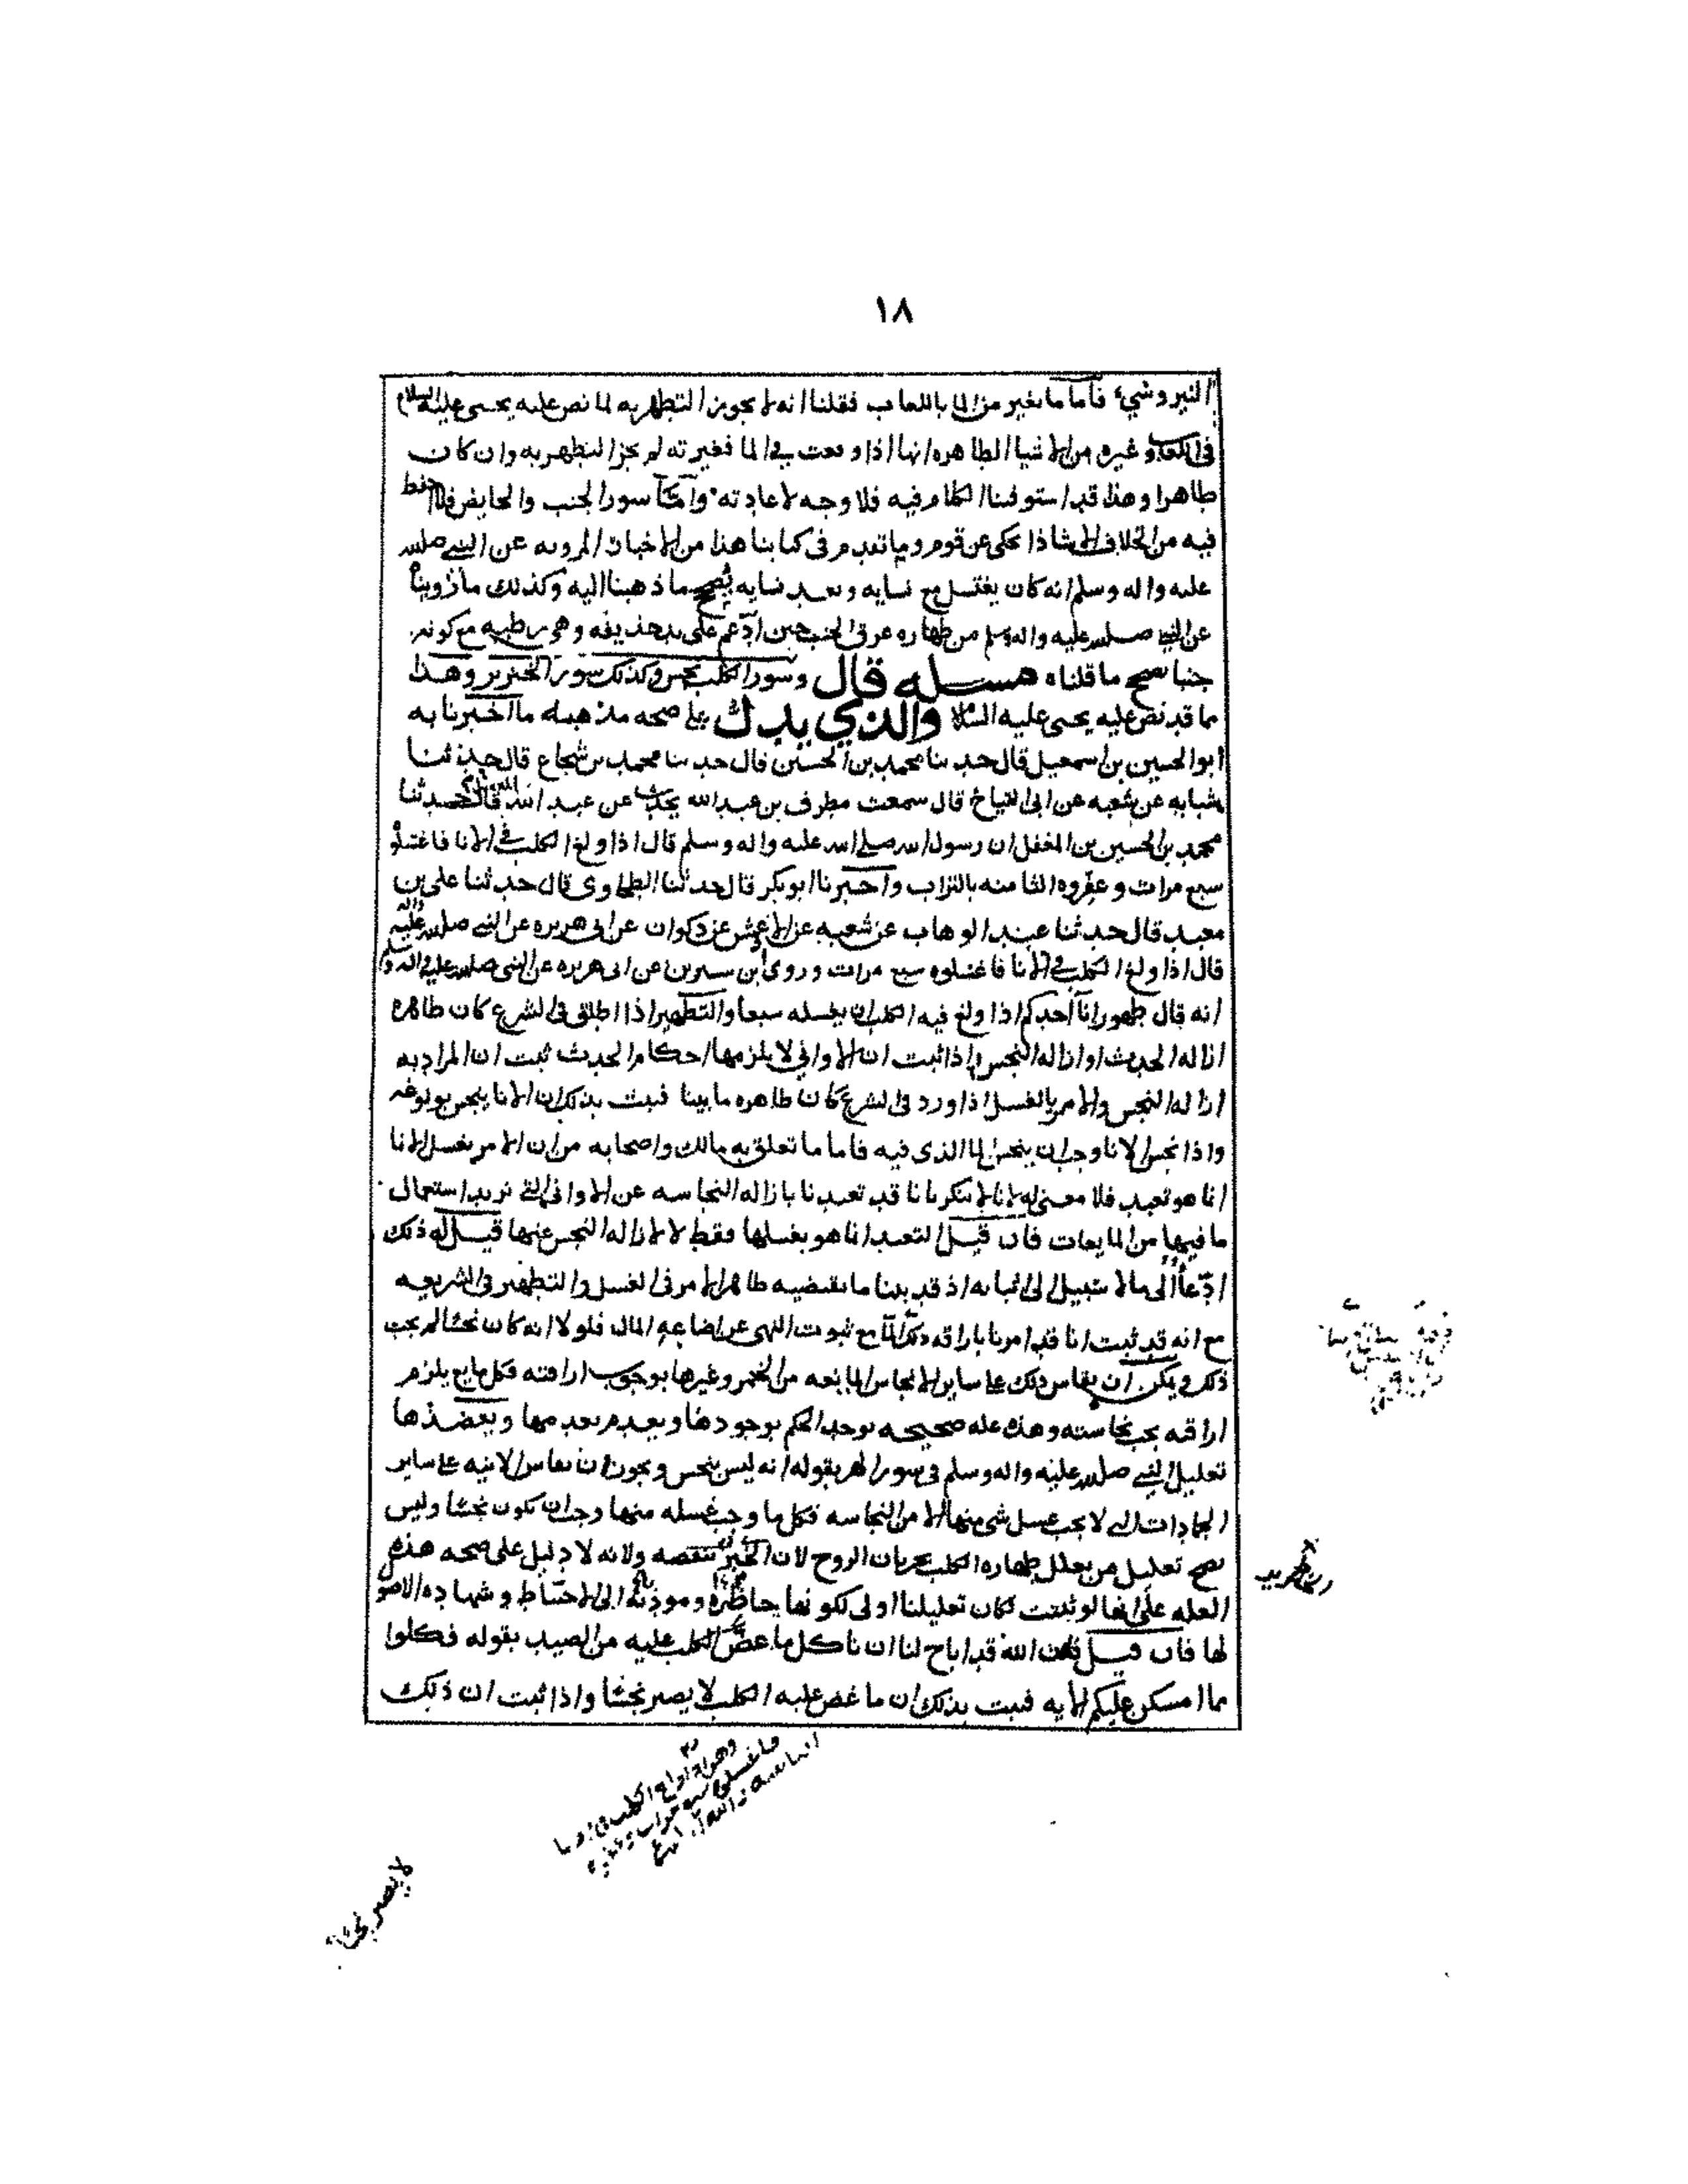 ١٨
النبر وشيء فأما ما تغير من الما باللعاب فقلنا انه لا يجوز التطهر به لما نص عليه يحيى عليه السلام
في اللعاب وغيره من الاشيا الطاهره انها اذا وقعت في الما فغيرته لم يجز التطهر به وان كان
طاهرا وهذا قد استوفينا الكلام فيه فلا وجه لاعادته وأما سور الجنب والحايض فلا احفظ
فيه من الخلاف الا شاذا يحكى عن قوم وما تقدم في كتابنا هذا من الاخبار المرويه عن النبي صلى الله
عليه واله وسلم انه كان يغتسل مع نسايه وبعد نسايه يصحح ما ذهبنا اليه وكذلك ما روينا
عن النبي صلى الله عليه واله وسلم من طهاره عرق الجنب حين ادعم على يد حذيفه وهي رطبه مع كونه
جنبا يصحح ما قلناه مسله قال وسور الكلب نجس وكذلك سور الخنزير وهذا
مما قد نص عليه يحيى عليه السلام والذي يدل على صحه مذهبه ما اخبرنا به
ابو الحسين بن اسمعيل قال حدثنا محمد بن الحسين قال حدثنا محمد بن شجاع قال حدثنا
شبابه عن شعبه عن ابي التياح قال سمعت مطرف بن عبد الله يحدث عن عبد الله قال حدثنا
محمد بن الحسين بن المغفل ان رسول الله صلى الله عليه واله وسلم قال اذا ولغ الكلب في الانا فاغسلوه
سبع مرات وعفروه الثامنه بالتراب واخبرنا ابو بكر قال حدثنا الطحاوي قال حدثنا علي بن
معبد قال حدثنا عبد الوهاب عن شعبه عن الاعمش عن ذكوان عن ابي هريره عن النبي صلى الله عليه واله
قال اذا ولغ الكلب في الانا فاغسلوه سبع مرات وروى ابن سيرين عن ابي هريره عن النبي صلى الله عليه واله وسلم
انه قال طهور انا احدكم اذا ولغ فيه الكلب ان يغسله سبعا والتطهير اذا اطلق في الشرع كان ظاهره
ازاله الحدث او ازاله النجس واذا ثبت ان الاواني لا يلزمها احكام الحدث ثبت ان المراد به
ازاله النجس والامر بالغسل اذا ورد في الشرع كان ظاهره ما بينا فثبت بذلك ان الانا ينجس بولوغه
واذا نجس الانا وجب ان ينجس الما الذي فيه فاما ما تعلق به مالك واصحابه من ان الامر بغسل الانا
انما هو تعبد فلا معنى له لانا لا ننكر انا قد تعبدنا بازاله النجاسه عن الاواني التي نريد استعمال
ما فيها من المايعات فان قيل التعبد انما هو بغسلها فقط لا لازاله النجس عنها قيل له ذلك
ادعا الى ما لا سبيل الى اثباته اذ قد بينا ما يقتضيه ظاهر الامر في الغسل والتطهير في الشريعه
مع انه قد ثبت انا قد امرنا باراقه ذلك الما مع ثبوت النهي عن اضاعه المال فلولا انه كان نجسا لم يجب
ذلك ويمكن ان يقاس ذلك على ساير الانجاس المايعه من الخمر وغيرها بوجوب اراقته فكل مايع يلزم
اراقته يجب نجاسته وهذه عله صحيحه يوجد الحكم بوجودها ويعدم بعدمها ويعضدها
تعليل النبي صلى الله عليه واله وسلم في سور الهر بقوله انه ليس بنجس ويجوز ان تقاس الانيه على ساير
الجمادات التي لا يجب غسل شي منها الا من النجاسه فكل ما وجب غسله منها وجب ان يكون نجسا وليس
يصح تعليل من يعلل طهاره الكلب بجريان الروح لان الخنزير ينقضه ولانه لا دليل على صحه هذه
العله على انها لو ثبتت لكان تعليلنا اولى لكونها حاظره وموديه الى الاحتياط وشهاده الاصول
لها فان قيل فان الله قد اباح لنا ان ناكل ما عض الكلب عليه من الصيد بقوله فكلوا
مما امسكن عليكم الايه فثبت بذلك ان ما عض عليه الكلب لا يصير نجسا واذا ثبت ان ذلك
وهو اذا ولغ الكلب في
فاغسلوه سبع مرات وعفروه
لا يصير نجسا